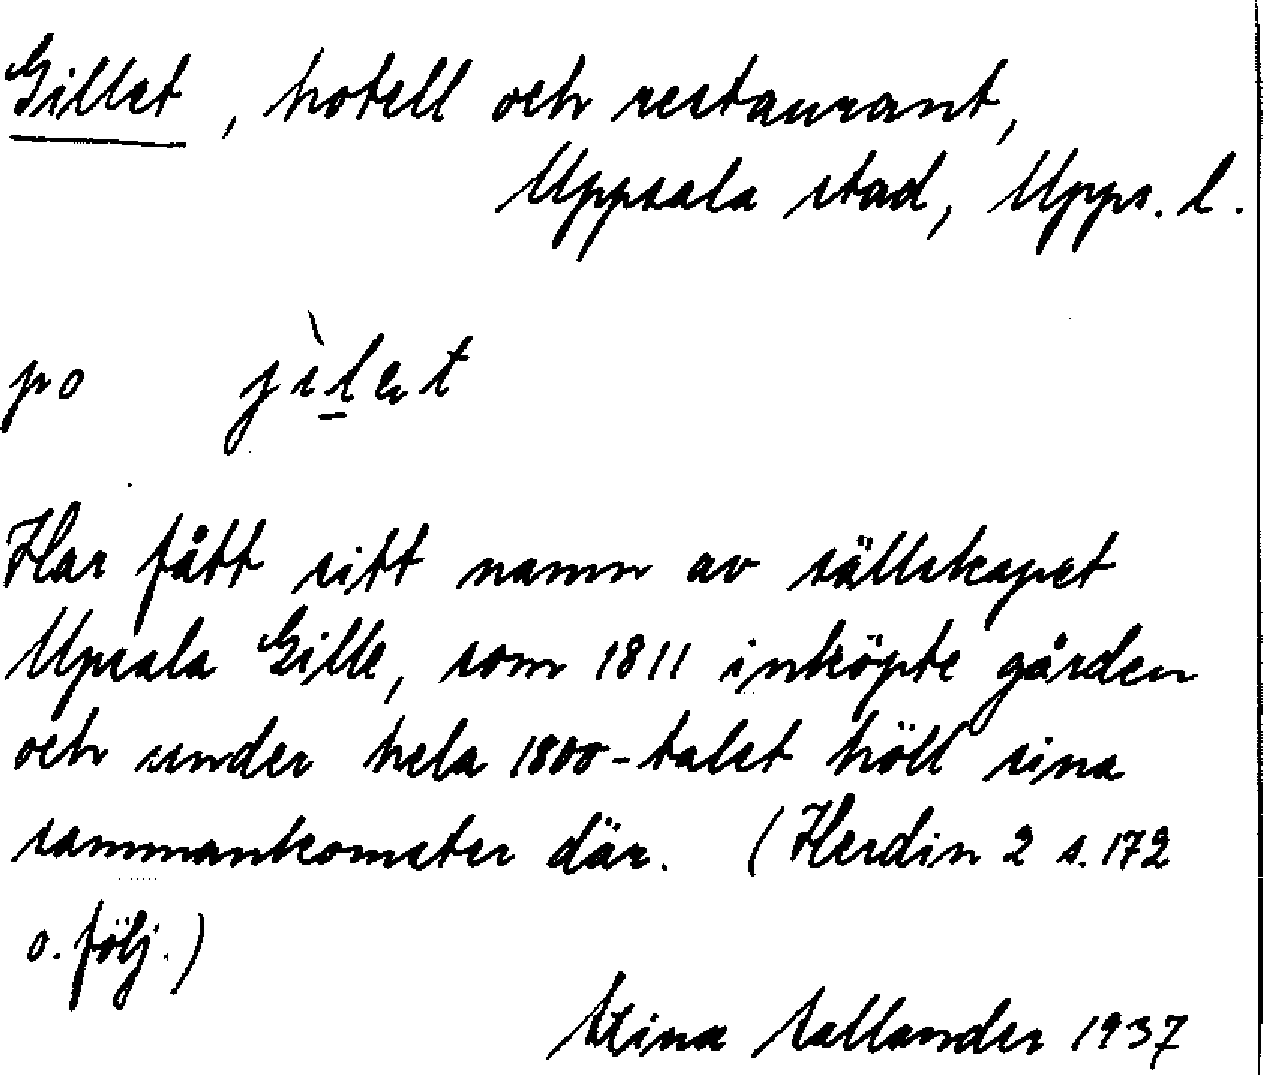 Gillet, hotell och restaurant,
Uppsala stad, Upps. l.
po jìlet
Har fått sitt namn av sällskapet
Upsala Gille, som 1811 inköpte gården
och under hela 1800-talet höll sina
sammankomster där. (Herdin 2 s. 172
o. följ.)
Stina Sallander 1937